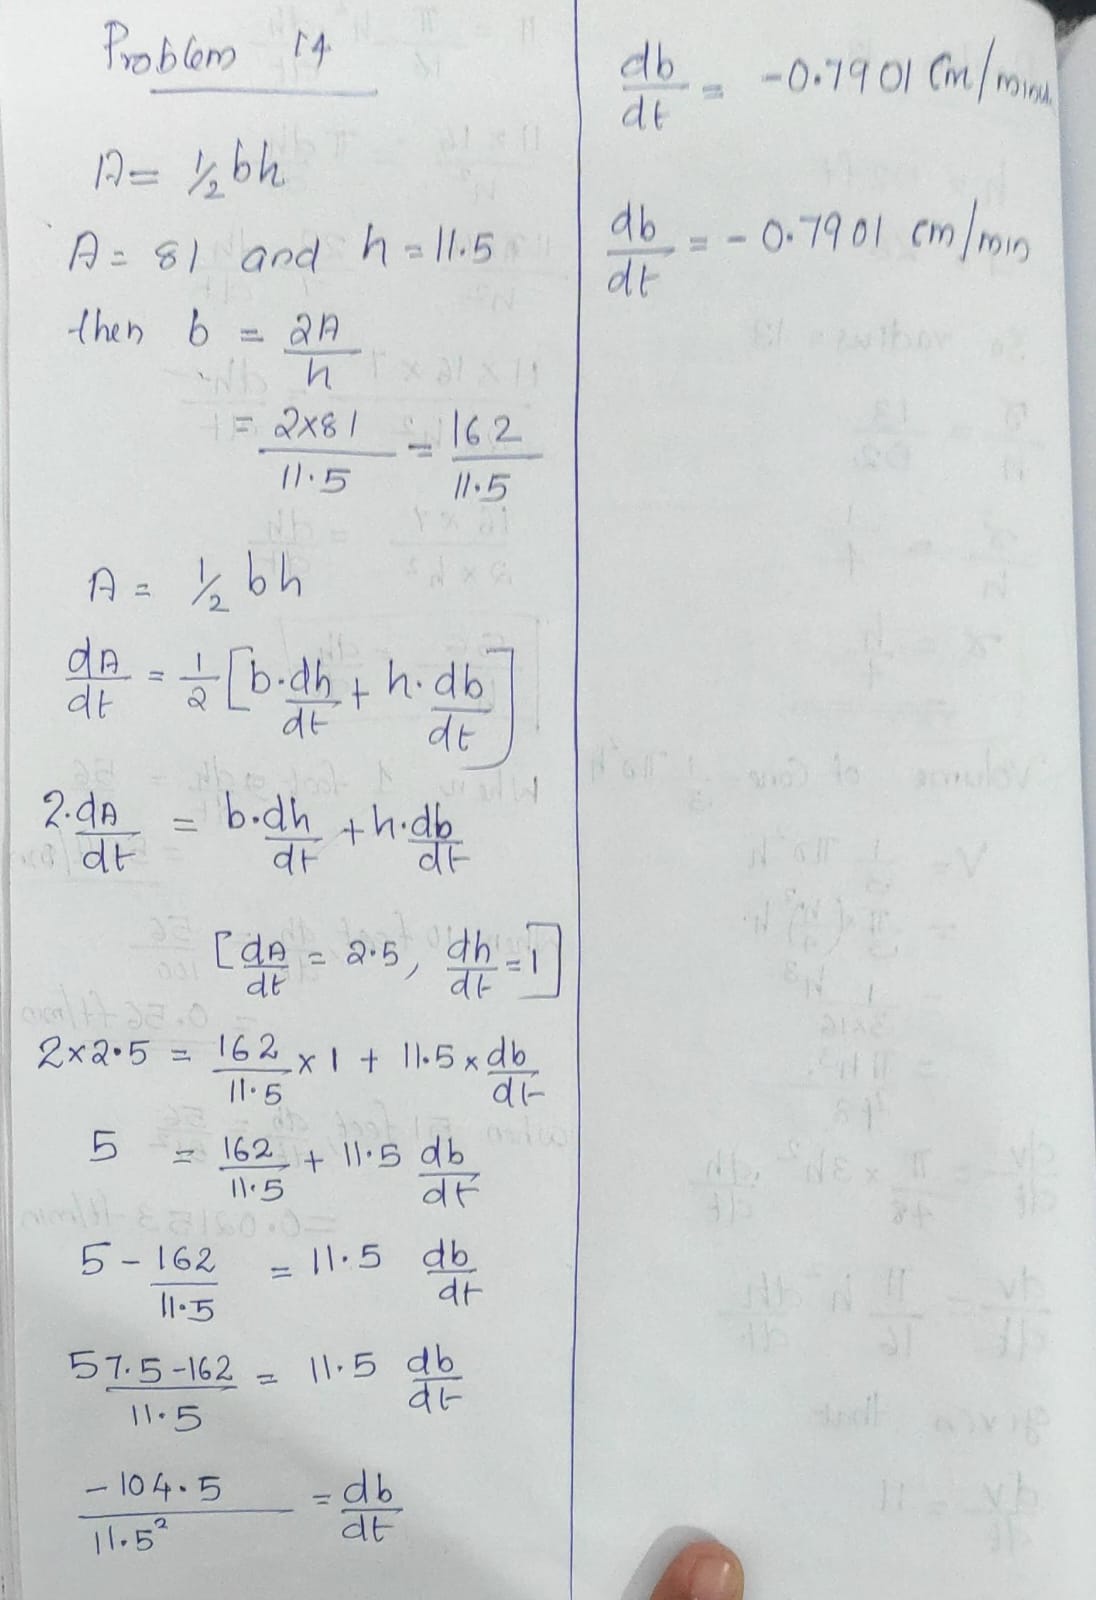 Problem 14
A = 1/2 bh
A = 81 and h = 11.5
then b = 2A/h
= 2x81/11.5 = 162/11.5
A = 1/2 bh
dA/dt = 1/2 [b.dh/dt + h.db/dt]
2.dA/dt = b.dh/dt + h.db/dt
[dA/dt = 2.5, dh/dt = 1]
2x2.5 = 162/11.5 x 1 + 11.5 x db/dt
5 = 162/11.5 + 11.5 db/dt
5 - 162/11.5 = 11.5 db/dt
57.5-162/11.5 = 11.5 db/dt
-104.5/11.5² = db/dt
db/dt = -0.7901 cm/minu
db/dt = -0.7901 cm/min